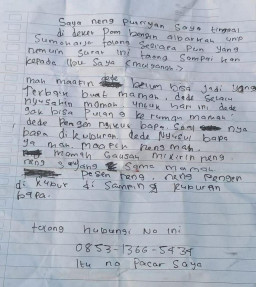 Saya neng puteryan Saya tinggal
di deket Pom bensin alBarkah
Sumoharjo tolong Seciara Pun Yang
nemuin Surat Ini tolong Sampai kan
kepada Ibu Saya
mah maafin belum bisa Jadi Yang
Terbaik buat mamah, dede Selalu
Nyusahin mamah untuk hari ini dede
gak bisa Pulang ke rumah mamah
dede Pengen ngikut bapa, nya
bapa di kuburan dede Nyusul bapa
ya mah, maafin neng mah.
mamah Gausah mikirin neng
neng Sayang Sama mamah
Pesen neng, neng Pengen
di Kubur di Samping Kuburan
bapa.
tolong hubungi No Ini
0853-1366-5434
Itu no Pacar Saya